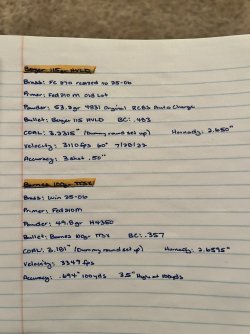 Berger 115gr HVLD
Brass: FC 270 necked to 25-06
Primer: Fed 210M Old Lot
Powder: 53.2gr 4831 Original RCBS Auto Charge
Bullet: Berger 115 HVLD BC: .483
COAL: 3.2315" (Dummy round set up) Hornady: 2.650"
Velocity: 3110 fps 60° 7/20/22
Accuracy: 3 shot .50"
Barnes 100gr TTSX
Brass: Win 25-06
Primer: Fed 210M
Powder: 49.8gr H4350
Bullet: Barnes 100gr TTSX BC: .357
COAL: 3.181" (Dummy round set up) Hornady: 2.6595"
Velocity: 3349 fps
Accuracy: .694" 100yds 3.5" High at 100yds